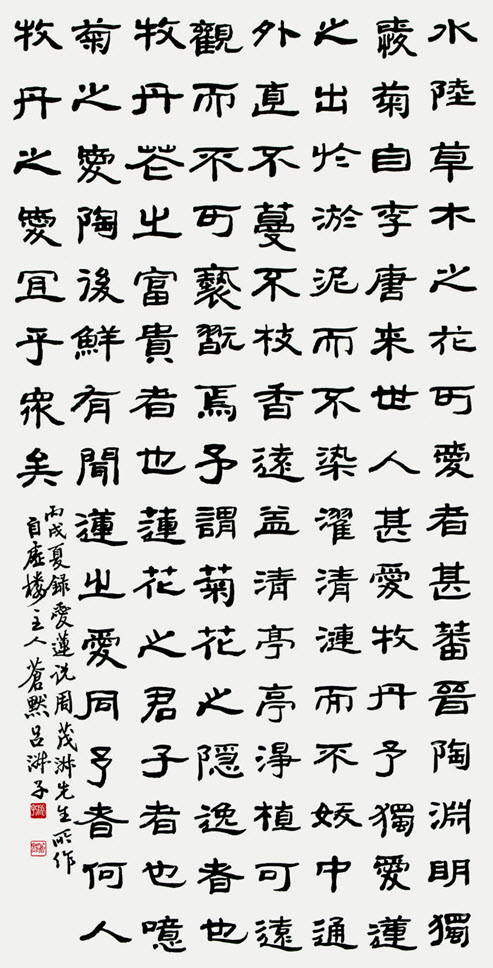 水陸草木之花可愛者甚蕃晉陶淵明獨
愛菊自李唐来世人甚愛牧丹予獨愛蓮
之出於淤泥而不染濯清漣而不妖中通
外直不蔓不枝香遠益清亭亭淨植可遠
觀而不可褻翫焉予謂菊花之隱逸者也
牧丹花之富貴者也蓮花之君子者也噫
菊之愛陶後鮮有聞蓮之愛同予者何人
牧丹之愛宜乎眾矣
丙戌夏録愛蓮説周茂淑先生所作
自虛樓主人蒼默呂淑子